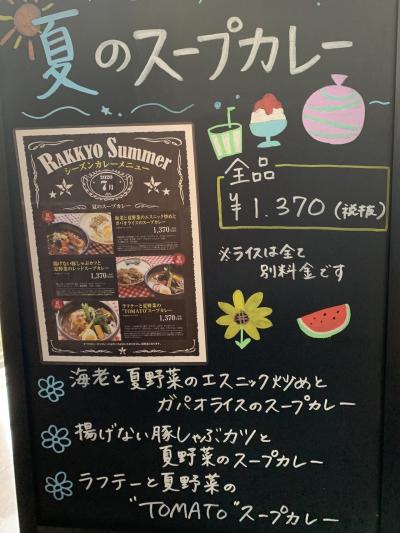 夏のスープカレー
RAKKYO Summer
シーズンカレーメニュー
2020
7月
夏のスープカレー
海老と夏野菜のエスニック炒めと
ガパオライスのスープカレー
1,370
揚げない豚しゃぶカツと
夏野菜のレッドスープカレー
1,370
ラフテーと夏野菜の
"TOMATO"スープカレー
1,370
全品
¥1.370(税抜)
※ライスは全て
別料金です
海老と夏野菜のエスニック炒めと
ガパオライスのスープカレー
揚げない豚しゃぶカツと
夏野菜のスープカレー
ラフテーと夏野菜の
"TOMATO"スープカレー